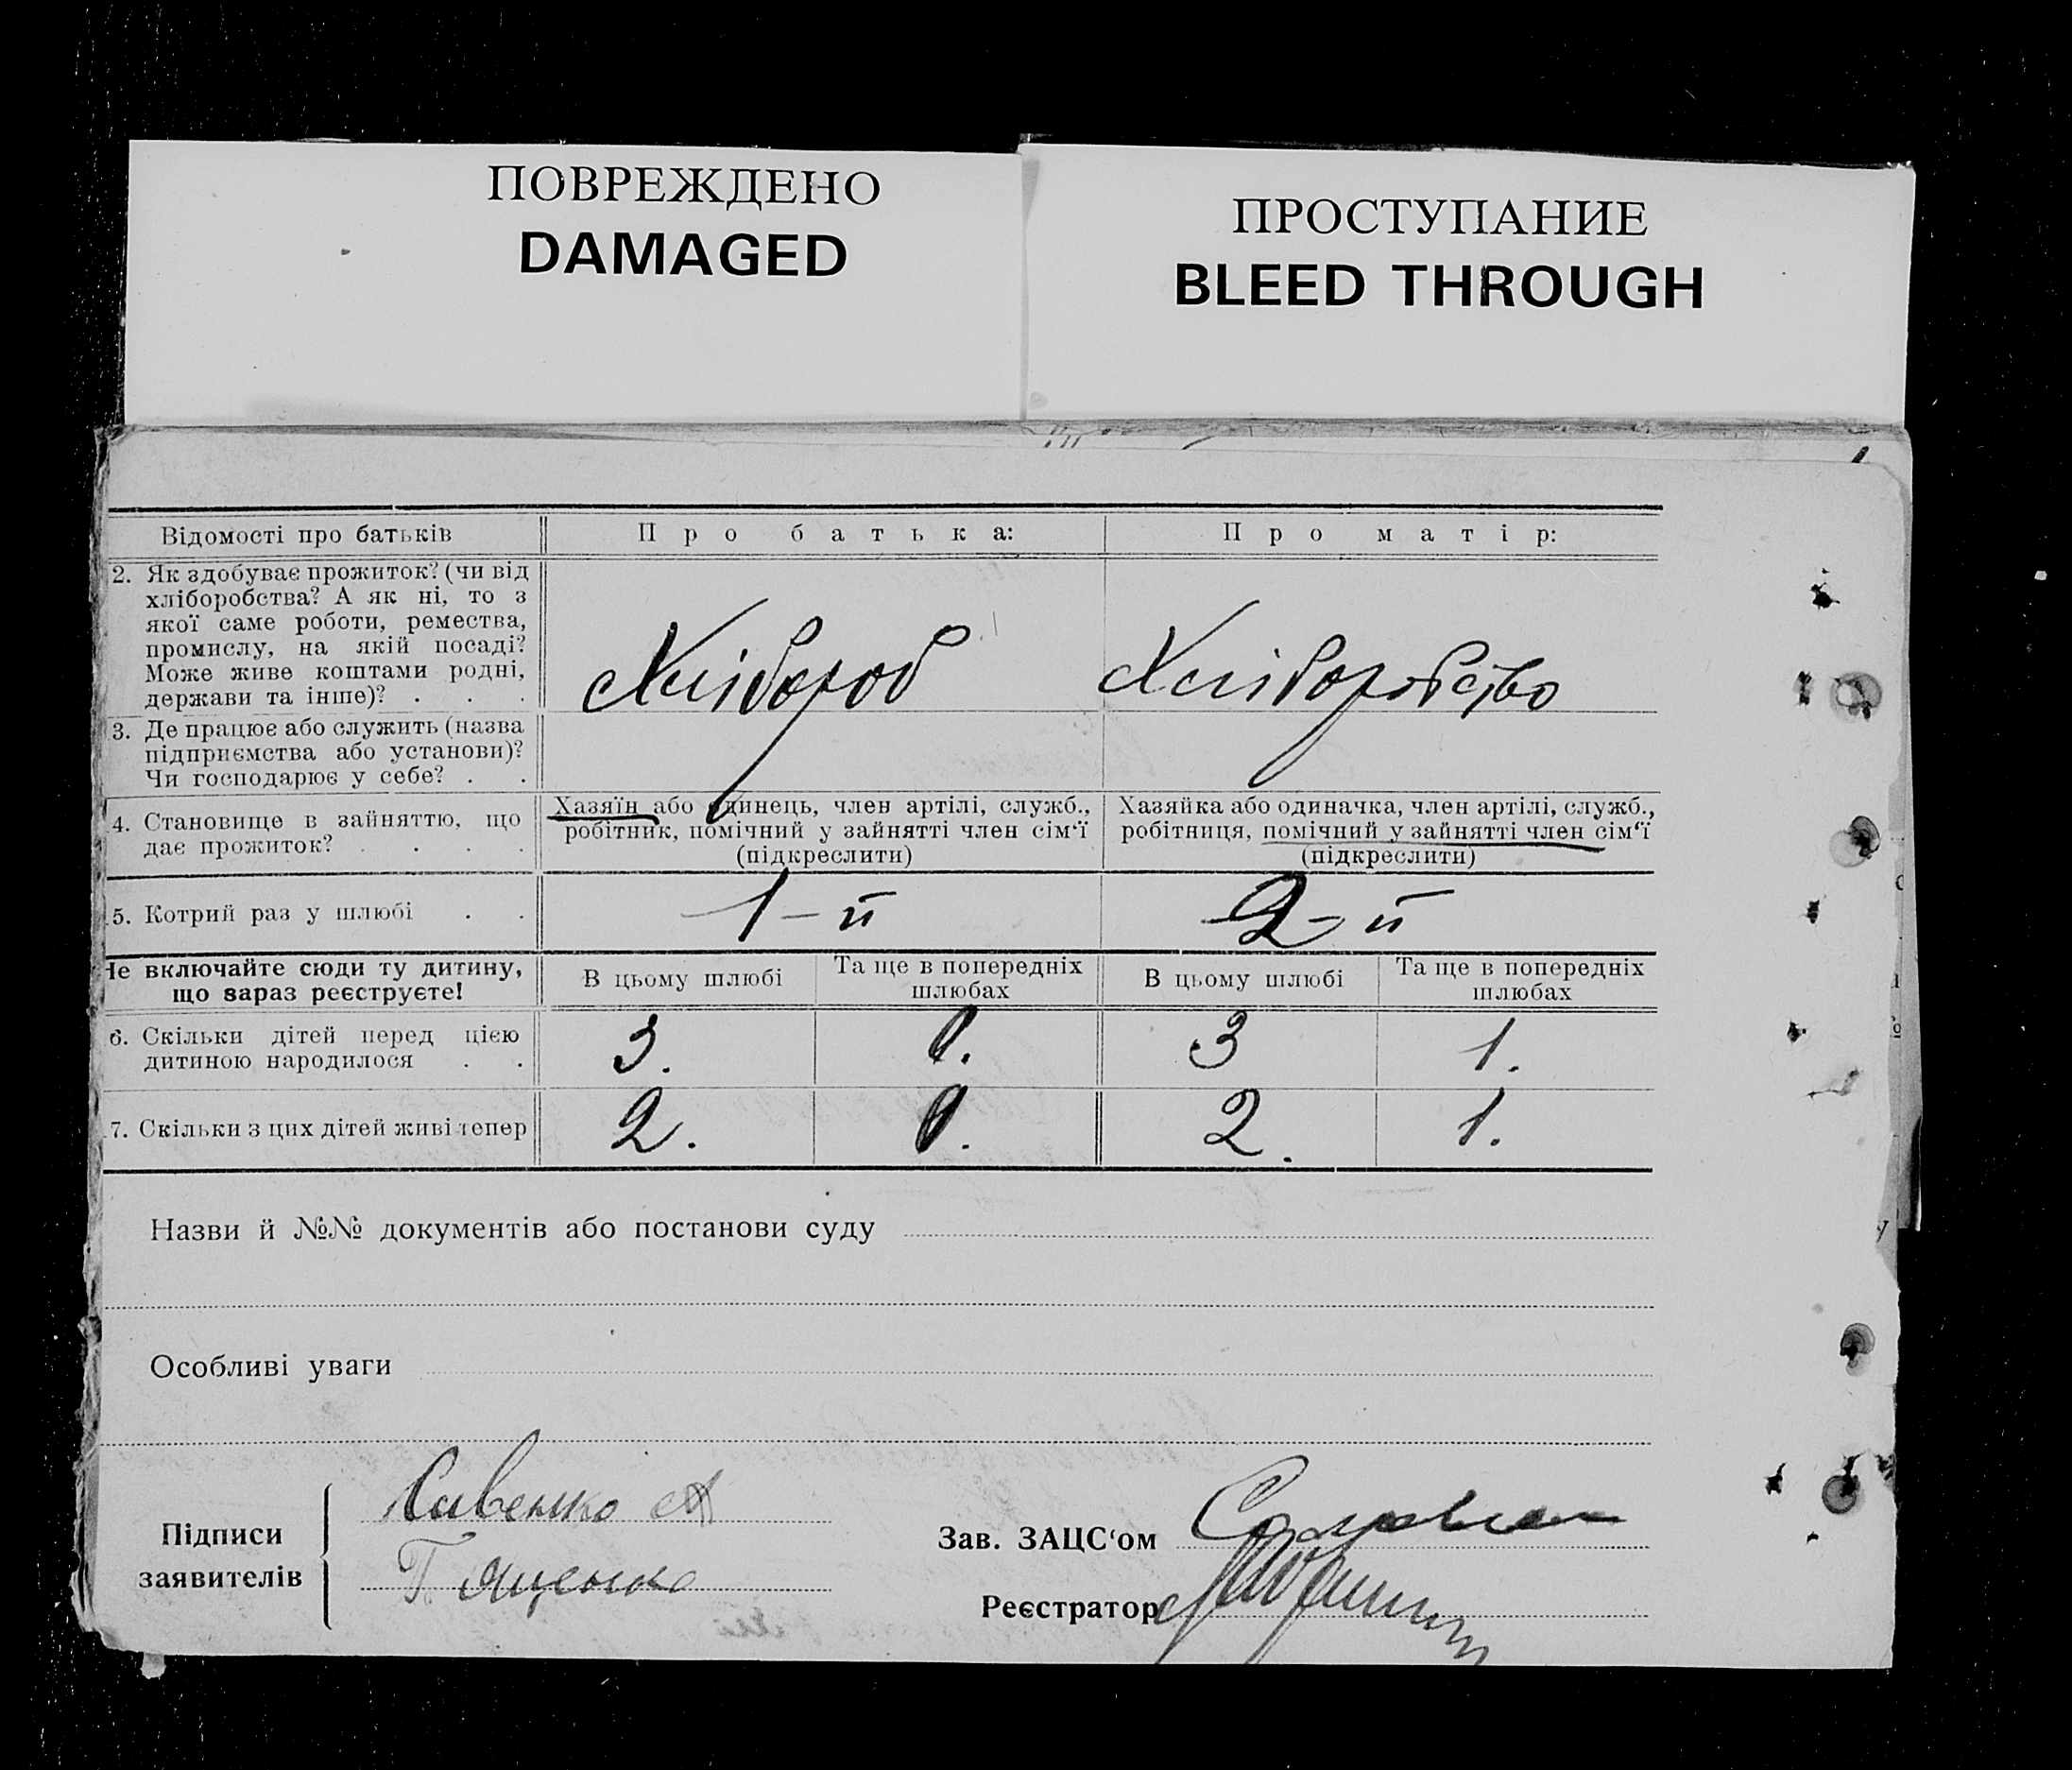 ПОВРЕЖДЕНО
DAMAGED
ПРОСТУПАНИЕ
BLEED THROUGH
Відомості про батьків
Про батька:
Про матір:
2. Як здобуває прожиток? (чи від
хліборобства? А як ні, то з
якої саме роботи, ремества,
промислу, на якій посаді?
Може живе коштами родні,
держави та інше)? . . .
Хлібороб
Хліборобство
3. Де працює або служить (назва
підприємства або установи)?
Чи господарює у себе? . .
4. Становище в зайняттю, що
дає прожиток? . . . .
Хазяїн або одинець, член артілі, служб.,
робітник, помічний у зайнятті член сім‘ї
(підкреслити)
Хазяйка або одиначка, член артілі, служб.,
робітниця, помічний у зайнятті член сім‘ї
(підкреслити)
5. Котрий раз у шлюбі . .
1-й
2-й
Не включайте сюди ту дитину,
що зараз реєструєте!
В цьому шлюбі
Та ще в попередніх
шлюбах
В цьому шлюбі
Та ще в попередніх
шлюбах
6. Скільки дітей перед цією
дитиною народилося . .
3.
0.
3
1.
7. Скільки з цих дітей живі тепер
2.
0.
2.
1.
Назви й №№ документів або постанови суду
Особливі уваги
Підписи
заявителів
Савенко А
Г Яценко
Зав. ЗАЦС‘ом
Реєстратор